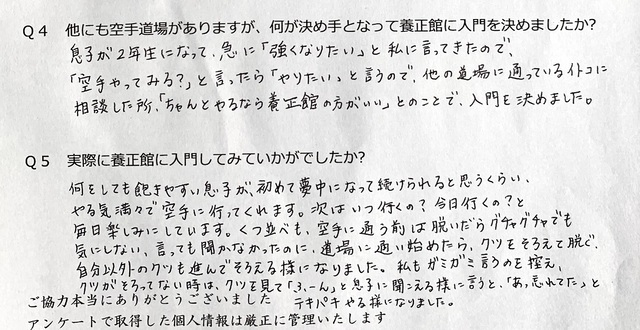 Q４　他にも空手道場がありますが、何が決め手となって養正館に入門を決めましたか?
息子が２年生になって、急に「強くなりたい」と私に言ってきたので、
「空手やってみる?」と言ったら「やりたい」と言うので、他の道場に通っているイトコに
相談した所、「ちゃんとやるなら養正館の方がいい」とのことで、入門を決めました。
Q５　実際に養正館に入門してみていかがでしたか?
何をしても飽きやすい息子が、初めて夢中になって続けられると思うくらい、
やる気満々で空手に行ってくれます。次はいつ行くの?今日行くの?と
毎日楽しみにしています。くつ並べも、空手に通う前は脱いだらグチャグチャでも
気にしない、言っても聞かなかったのに、道場に通い始めたら、クツをそろえて脱ぐ、
自分以外のクツも進んでそろえる様になりました。私もガミガミ言うのを控え、
クツがそろってない時は、クツを見て「ふ、ーん」と息子に聞こえる様に言うと、「あっ忘れてた」と
テキパキやる様になりました。
ご協力本当にありがとうございました
アンケートで取得した個人情報は厳正に管理いたします